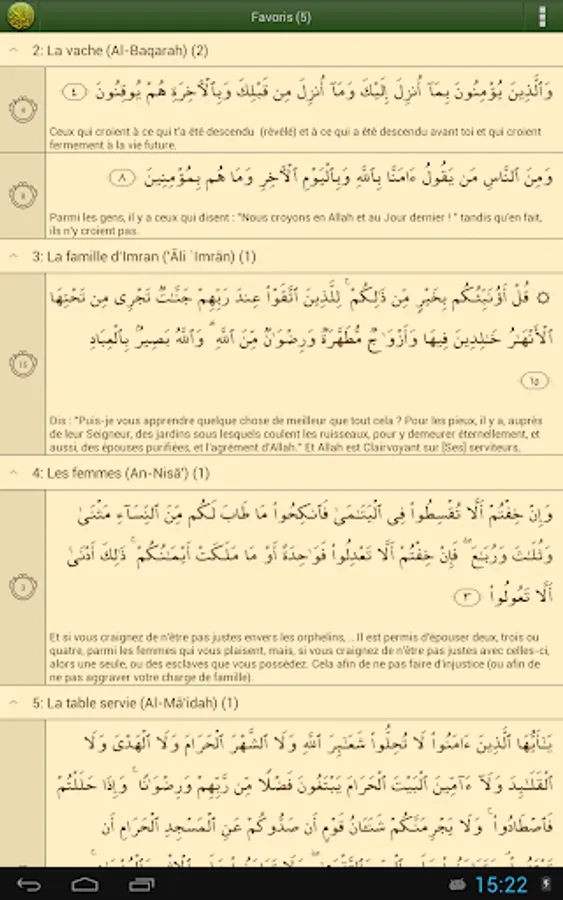 Favoris (5)
2: La vache (Al-Baqarah) (2)
وَٱلَّذِينَ يُؤْمِنُونَ بِمَآ أُنزِلَ إِلَيْكَ وَمَآ أُنزِلَ مِن قَبْلِكَ وَبِٱلْءَاخِرَةِ هُمْ يُوقِنُونَ ٤
Ceux qui croient à ce qui t'a été descendu (révélé) et à ce qui a été descendu avant toi et qui croient
fermement à la vie future.
وَمِنَ ٱلنَّاسِ مَن يَقُولُ ءَامَنَّا بِٱللَّهِ وَبِٱلْيَوْمِ ٱلْءَاخِرِ وَمَا هُم بِمُؤْمِنِينَ ٨
Parmi les gens, il y a ceux qui disent : "Nous croyons en Allah et au Jour dernier ! " tandis qu'en fait,
ils n'y croient pas.
3: La famille d'Imran ('Āli `Imrān) (1)
۞ قُلْ أَؤُنَبِّئُكُم بِخَيْرٍ مِّن ذَٰلِكُمْ ۚ لِلَّذِينَ ٱتَّقَوْا۟ عِندَ رَبِّهِمْ جَنَّٰتٌ تَجْرِى مِن تَحْتِهَا
ٱلْأَنْهَٰرُ خَٰلِدِينَ فِيهَا وَأَزْوَٰجٌ مُّطَهَّرَةٌ وَرِضْوَٰنٌ مِّنَ ٱللَّهِ ۗ وَٱللَّهُ بَصِيرٌۢ بِٱلْعِبَادِ
١٥
Dis : "Puis-je vous apprendre quelque chose de meilleur que tout cela ? Pour les pieux, il y a, auprès
de leur Seigneur, des jardins sous lesquels coulent les ruisseaux, pour y demeurer éternellement, et
aussi, des épouses purifiées, et l'agrément d'Allah." Et Allah est Clairvoyant sur [Ses] serviteurs,
4: Les femmes (An-Nisā') (1)
وَإِنْ خِفْتُمْ أَلَّا تُقْسِطُوا۟ فِى ٱلْيَتَٰمَىٰ فَٱنكِحُوا۟ مَا طَابَ لَكُم مِّنَ ٱلنِّسَآءِ مَثْنَىٰ
وَثُلَٰثَ وَرُبَٰعَ ۖ فَإِنْ خِفْتُمْ أَلَّا تَعْدِلُوا۟ فَوَٰحِدَةً أَوْ مَا مَلَكَتْ أَيْمَٰنُكُمْ ۚ ذَٰلِكَ أَدْنَىٰٓ
أَلَّا تَعُولُوا۟ ٣
Et si vous craignez de n'être pas justes envers les orphelins, ...Il est permis d'épouser deux, trois ou
quatre, parmi les femmes qui vous plaisent, mais, si vous craignez de n'être pas justes avec celles-ci,
alors une seule, ou des esclaves que vous possédez. Cela afin de ne pas faire d'injustice (ou afin de
ne pas aggraver votre charge de famille).
5: La table servie (Al-Mā'idah) (1)
يَٰٓأَيُّهَا ٱلَّذِينَ ءَامَنُوا۟ لَا تُحِلُّوا۟ شَعَٰٓئِرَ ٱللَّهِ وَلَا ٱلشَّهْرَ ٱلْحَرَامَ وَلَا ٱلْهَدْىَ وَلَا
ٱلْقَلَٰٓئِدَ وَلَآ ءَآمِّينَ ٱلْبَيْتَ ٱلْحَرَامَ يَبْتَغُونَ فَضْلًا مِّن رَّبِّهِمْ وَرِضْوَٰنًا ۚ وَإِذَا حَلَلْتُمْ
فَٱصْطَادُوا۟ ۚ وَلَا يَجْرِمَنَّكُمْ شَنَـَٔانُ قَوْمٍ أَن صَدُّوكُمْ عَنِ ٱلْمَسْجِدِ ٱلْحَرَامِ أَن
15:22